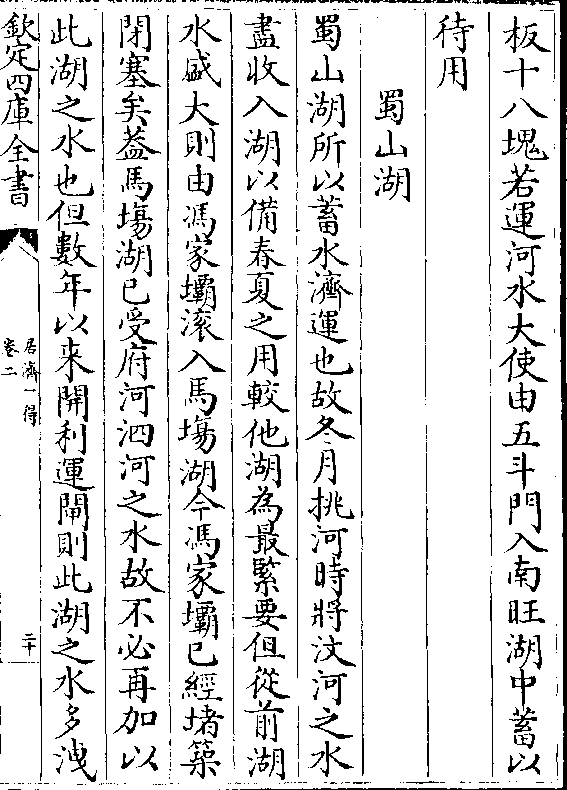 板十八塊若運河水大使由五斗門入南旺湖中蓄以
待用
蜀山湖
蜀山湖所以蓄水濟運也故冬月挑河時將汶河之水
盡收入湖以備春夏之用較他湖為最緊要但從前湖
水盛大則由馮家壩滚入馬塲湖今馮家壩已經堵築
閉塞矣葢馬塲湖已受府河泗河之水故不必再加以
此湖之水也但數年以来開利運閘則此湖之水多洩
欽定四庫全書
居濟一得
卷二
二十